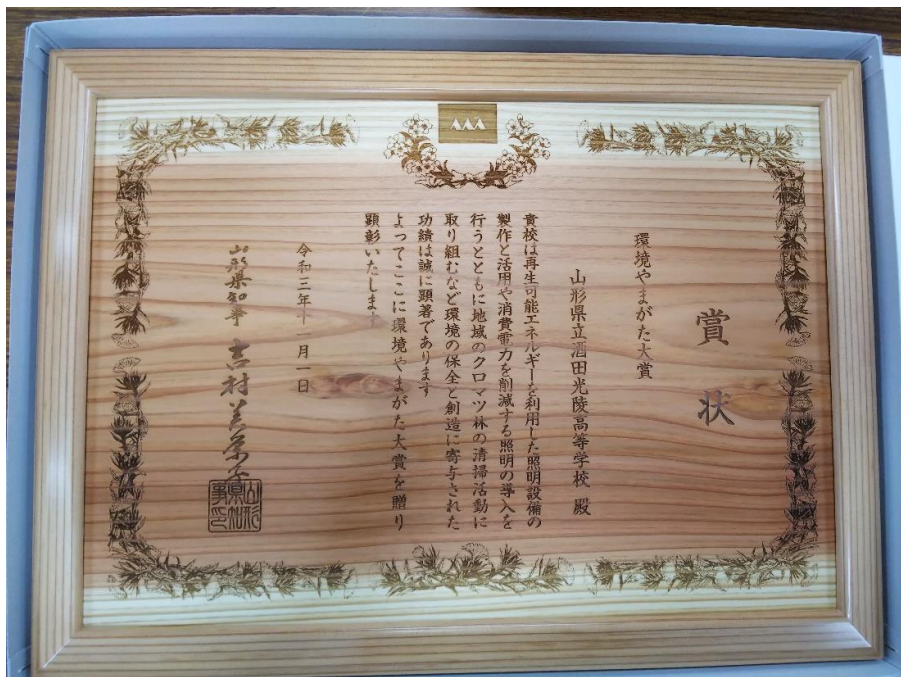 賞状
環境やまがた大賞
山形県立酒田光陵高等学校 殿
貴校は再生可能エネルギーを利用した照明設備の
製作と活用や消費電力を削減する照明の導入を
行うとともに地域のクロマツ林の清掃活動に
取り組むなど環境の保全と創造に寄与された
功績は誠に顕著であります
よってここに環境やまがた大賞を贈り
顕彰いたします
令和三年十一月一日
山形県知事 吉村美栄子
山形県知事印